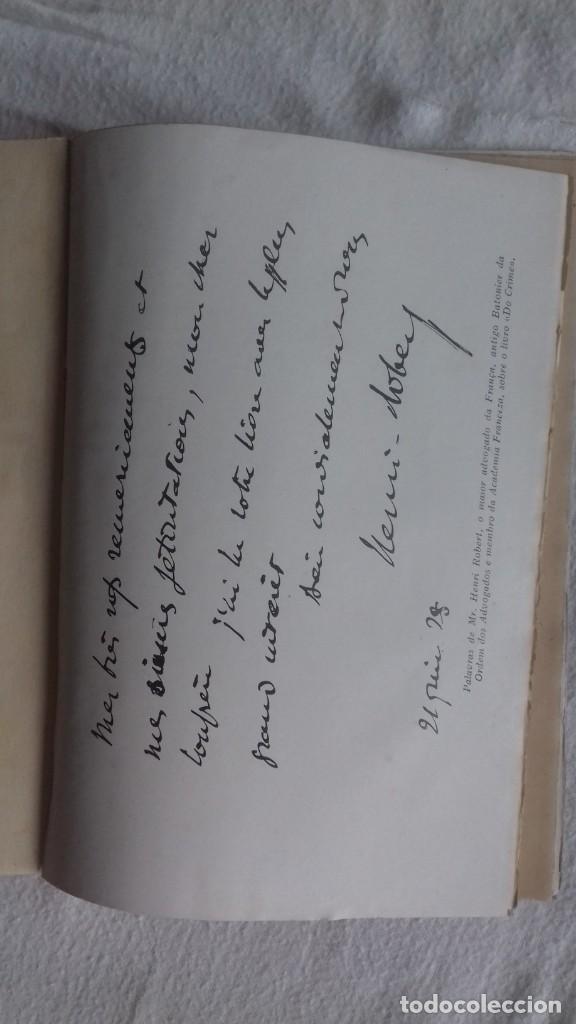 Mes très vifs remerciements et
mes sincères félicitations, mon cher
confrère j'ai lu votre livre avec le plus
grand intérêt
bien cordialement à vous
Henri-Robert
21 juin 28
Palavras de Mr. Henri Robert, o maior advogado da França, antigo Batonier da
Ordem dos Advogados e membro da Academia Franceza, sobre o livro «Do Crime».
todocoleccion